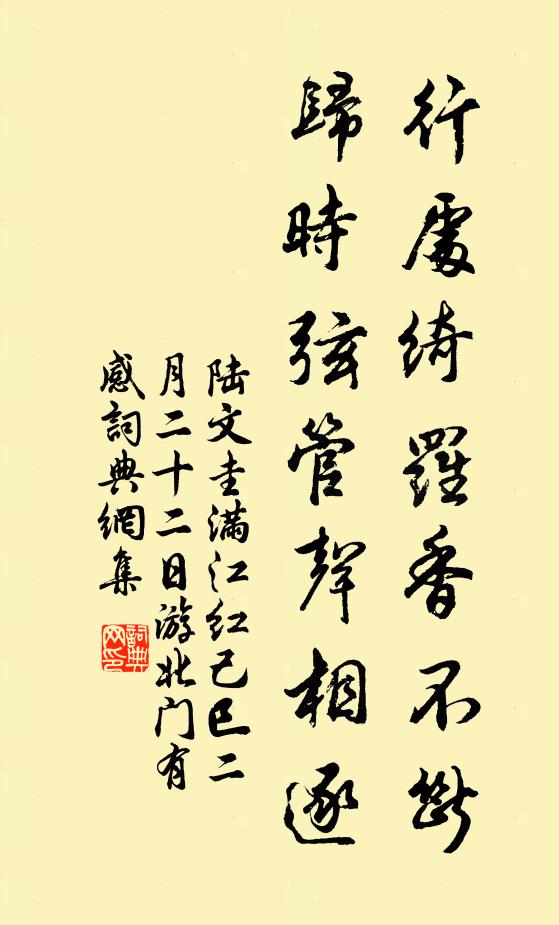 行處綺羅香不斷
歸時弦管聲相逐
陆文圭滿江红己巳二
月二十二日游北门有
感詞典網集
詞典网印